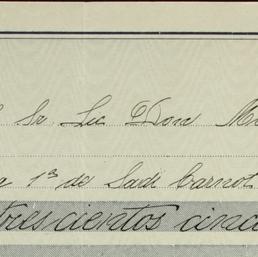 Sr Lic Don
1ª de Sadi Carnot
trescientos cinc